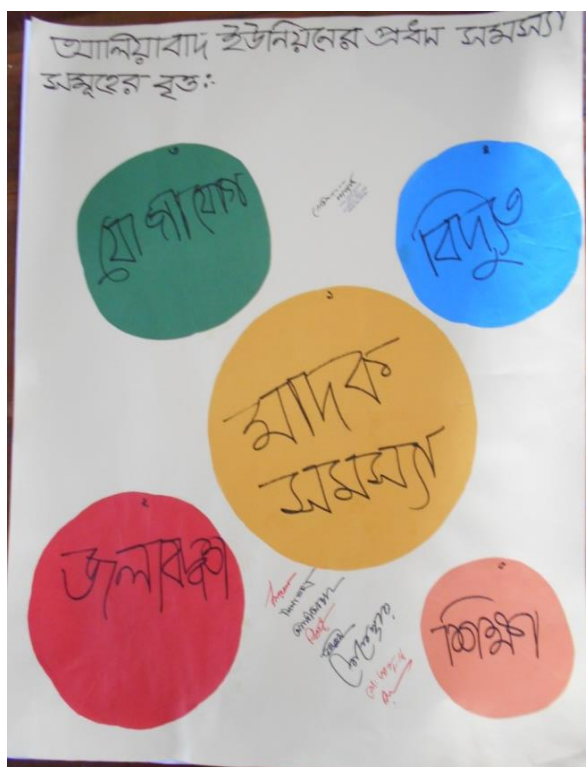 আলিয়াবাদ ইউনিয়নের প্রধান সমস্যা
সমূহের বৃত্ত:-
৩
যোগাযোগ
৪
বিদ্যুত
১
মাদক
সমস্যা
২
জলাবদ্ধ
শিক্ষা